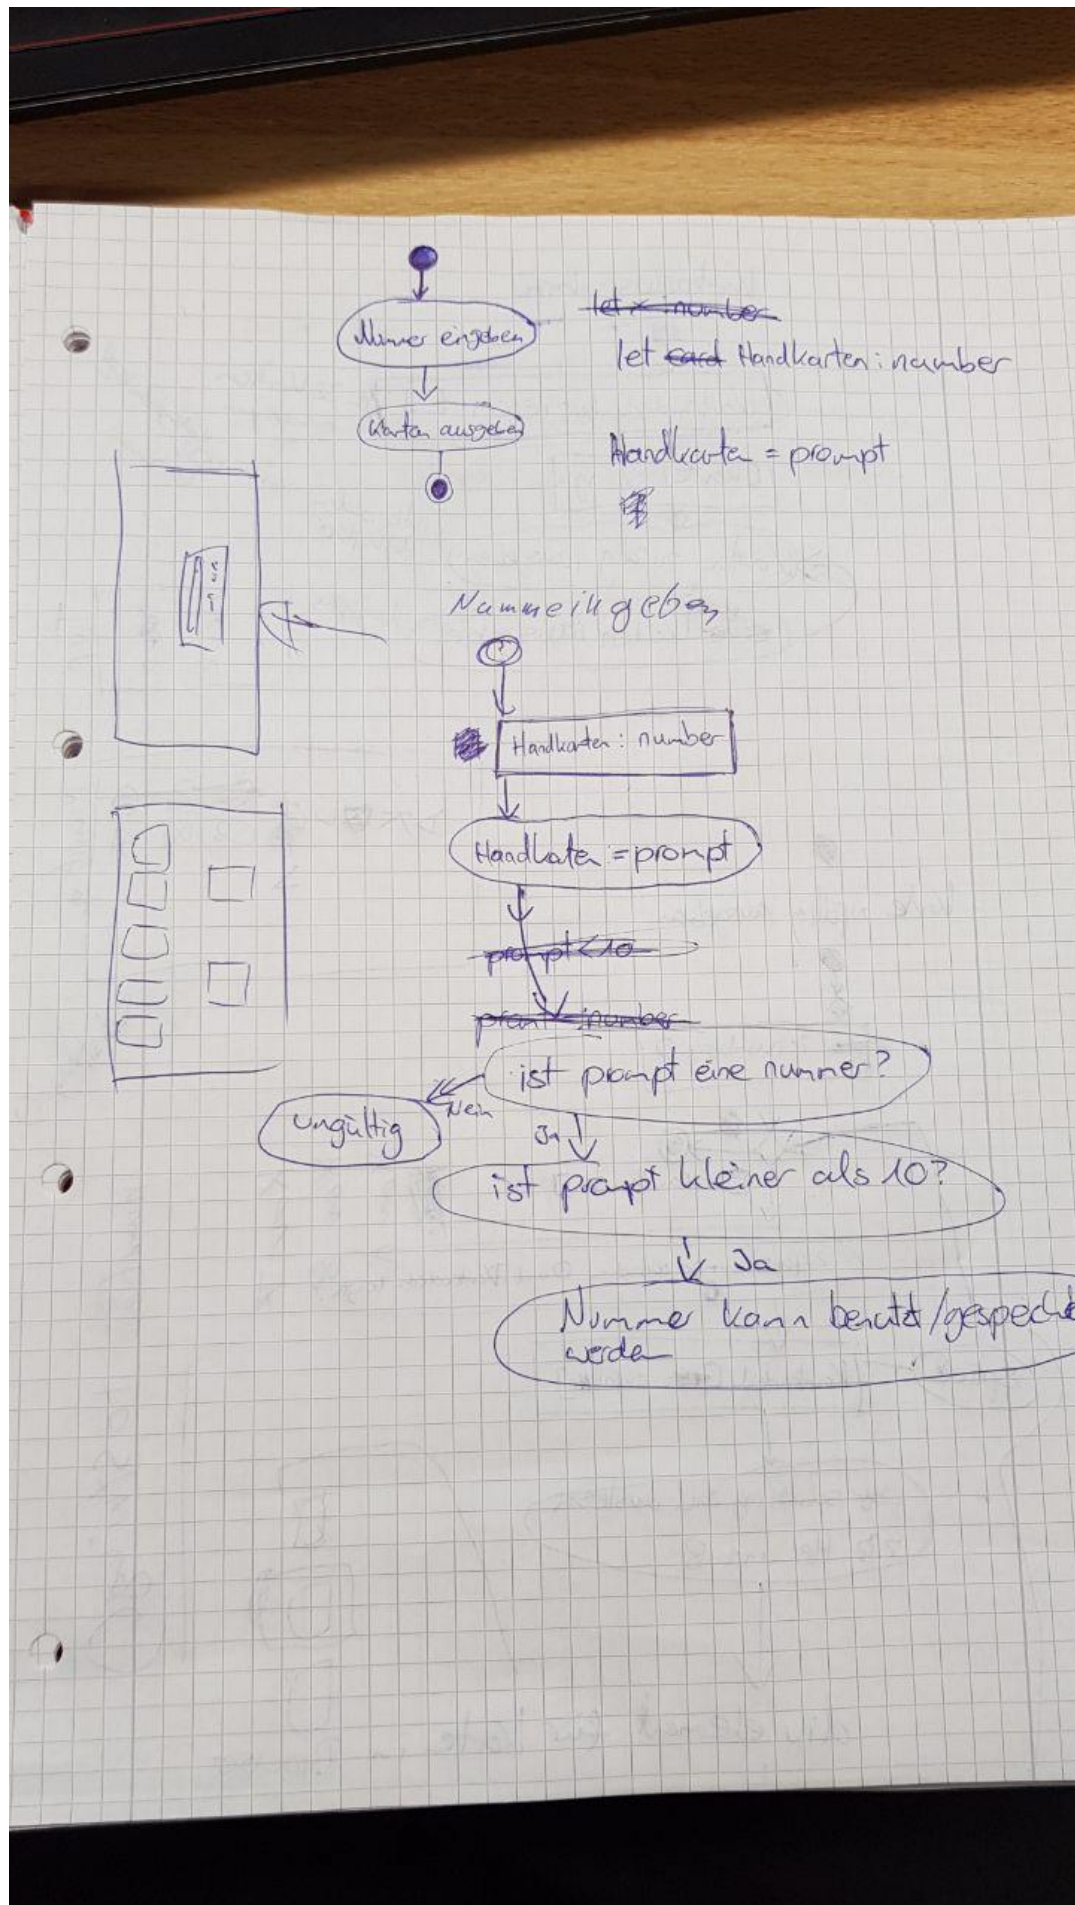 Nummer eingeben
let x : number
let card Handkarten : number
Karten ausgeben
Handkarten = prompt
Nummeingeben
Handkarten : number
Handkaten = prompt
prompt < 10
ist prompt eine nummer?
Nein
ungültig
Ja
ist prompt kleiner als 10?
Ja
Nummer kann benutzt/gespeiche
werden